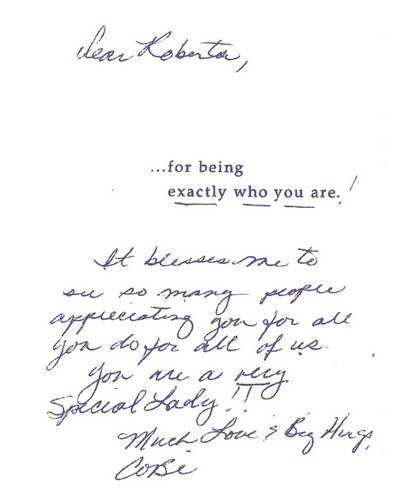 Dear Roberta,
...for being
exactly who you are.!
It blesses me to
see so many people
appreciating you for all
you do for all of us.
You are a very
Special Lady!!
Much Love & Big Hugs,
CoBi